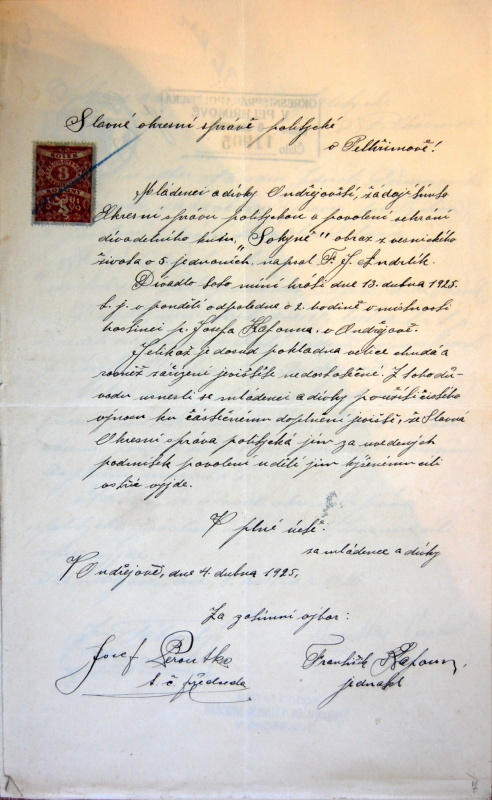 Slavné okresní správě politické
v Pelhřimově!
KOLEK
3
KORUNY
Mládenci a dívky Ondřejovští, žádají tímto
Okresní správu politickou o povolení sehrání
divadelního kusu, "Sokyně" obraz z vesnického
života o 5. jednáních, napsal F. J. Andrlík.
Divadlo toto míní hráti dne 13. dubna 1925.
t. j. v pondělí odpoledne o 2. hodině v místnosti
hostinci p. Josefa v Ondřejově.
Jelikož je dosud pokladna velice chudá a
rovněž zařízení jeviště nedostatečné. Z toho dů-
vodu usnesli se mládenci a dívky použíti čistého
výnosu ku částečnému doplnění jeviště, že Slavná
Okresní správa politická jim za uvedených
podmínek povolení udělí jim k cíli
vstříc vyjde.
V plné úctě:
za mládence a dívky
V Ondřejově, dne 4. dubna 1925,
Za zábavní výbor:
Josef Peroutka František
t. č. předseda jednatel